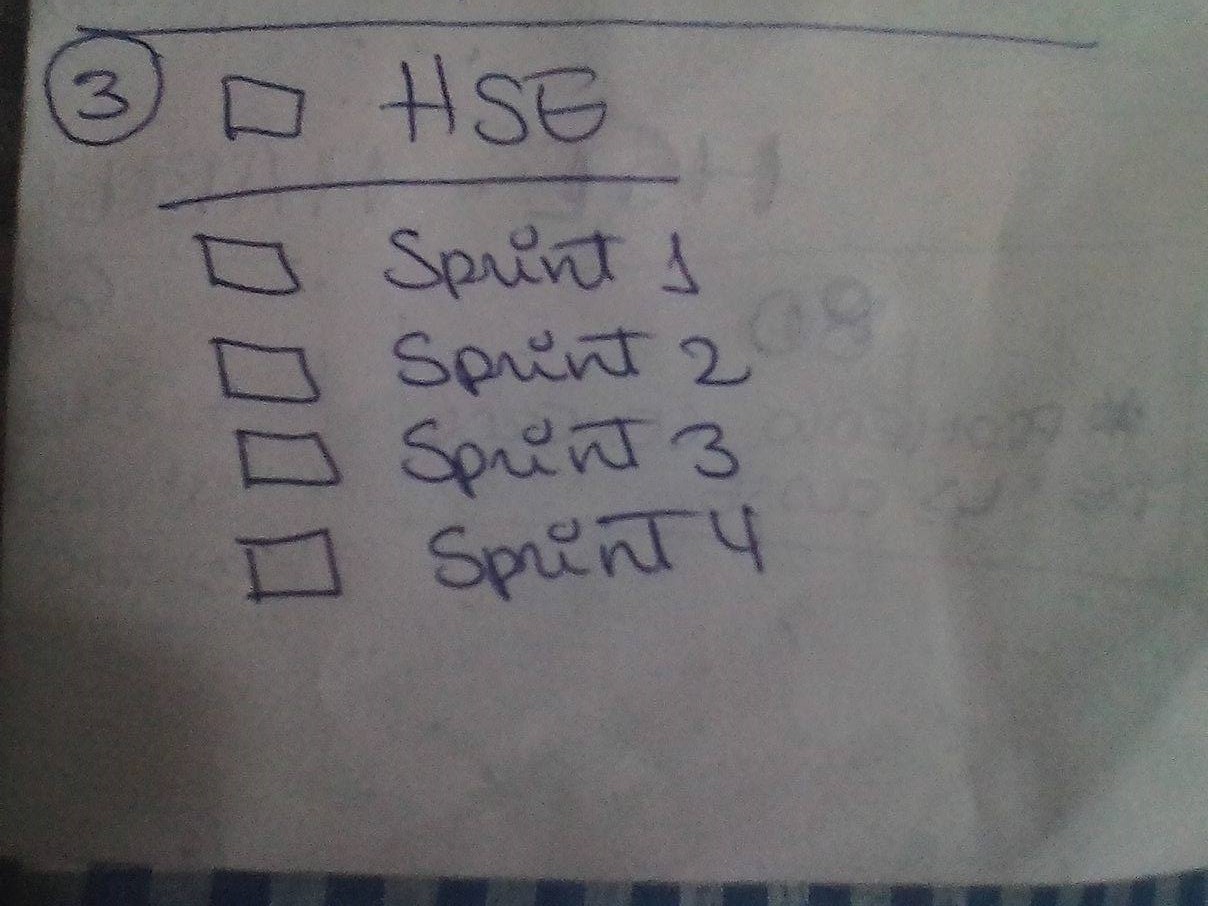 3 □ HSE
□ Sprint 1
□ Sprint 2
□ Sprint 3
□ Sprint 4